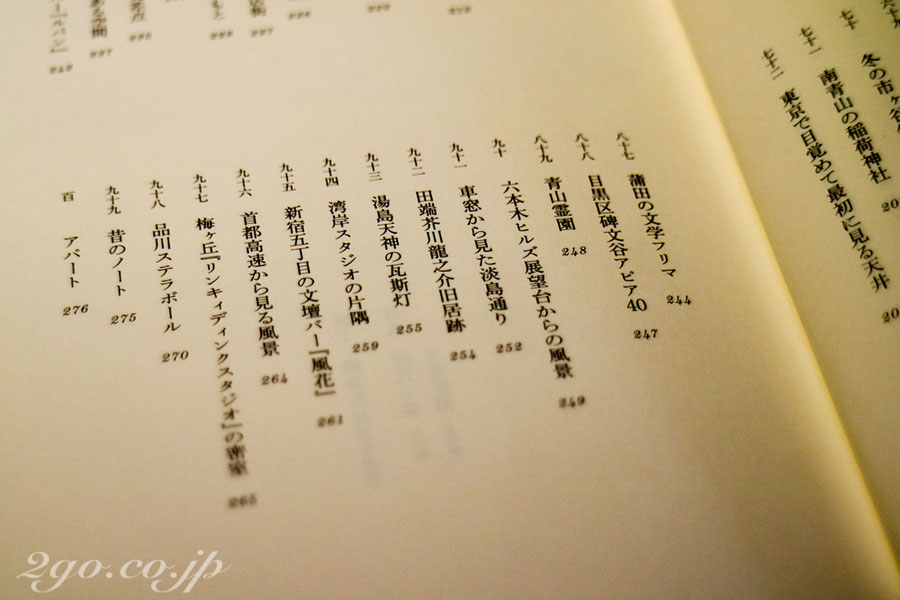 冬の市ヶ谷
七十一 南青山の稲荷神社
七十二 東京で目覚めて最初に見る天井
八十七 蒲田の文学フリマ 244
八十八 目黒区碑文谷アピア40 247
八十九 青山霊園 248
九十 六本木ヒルズ展望台からの風景 249
九十一 車窓から見た淡島通り 252
九十二 田端芥川龍之介旧居跡 254
九十三 湯島天神の瓦斯灯 255
九十四 湾岸スタジオの片隅 259
九十五 新宿五丁目の文壇バー『風花』 261
九十六 首都高速から見る風景 264
九十七 梅ヶ丘『リンキィディンクスタジオ』の密室 265
九十八 品川ステラボール 270
九十九 昔のノート 275
百 アパート 276
2go.co.jp